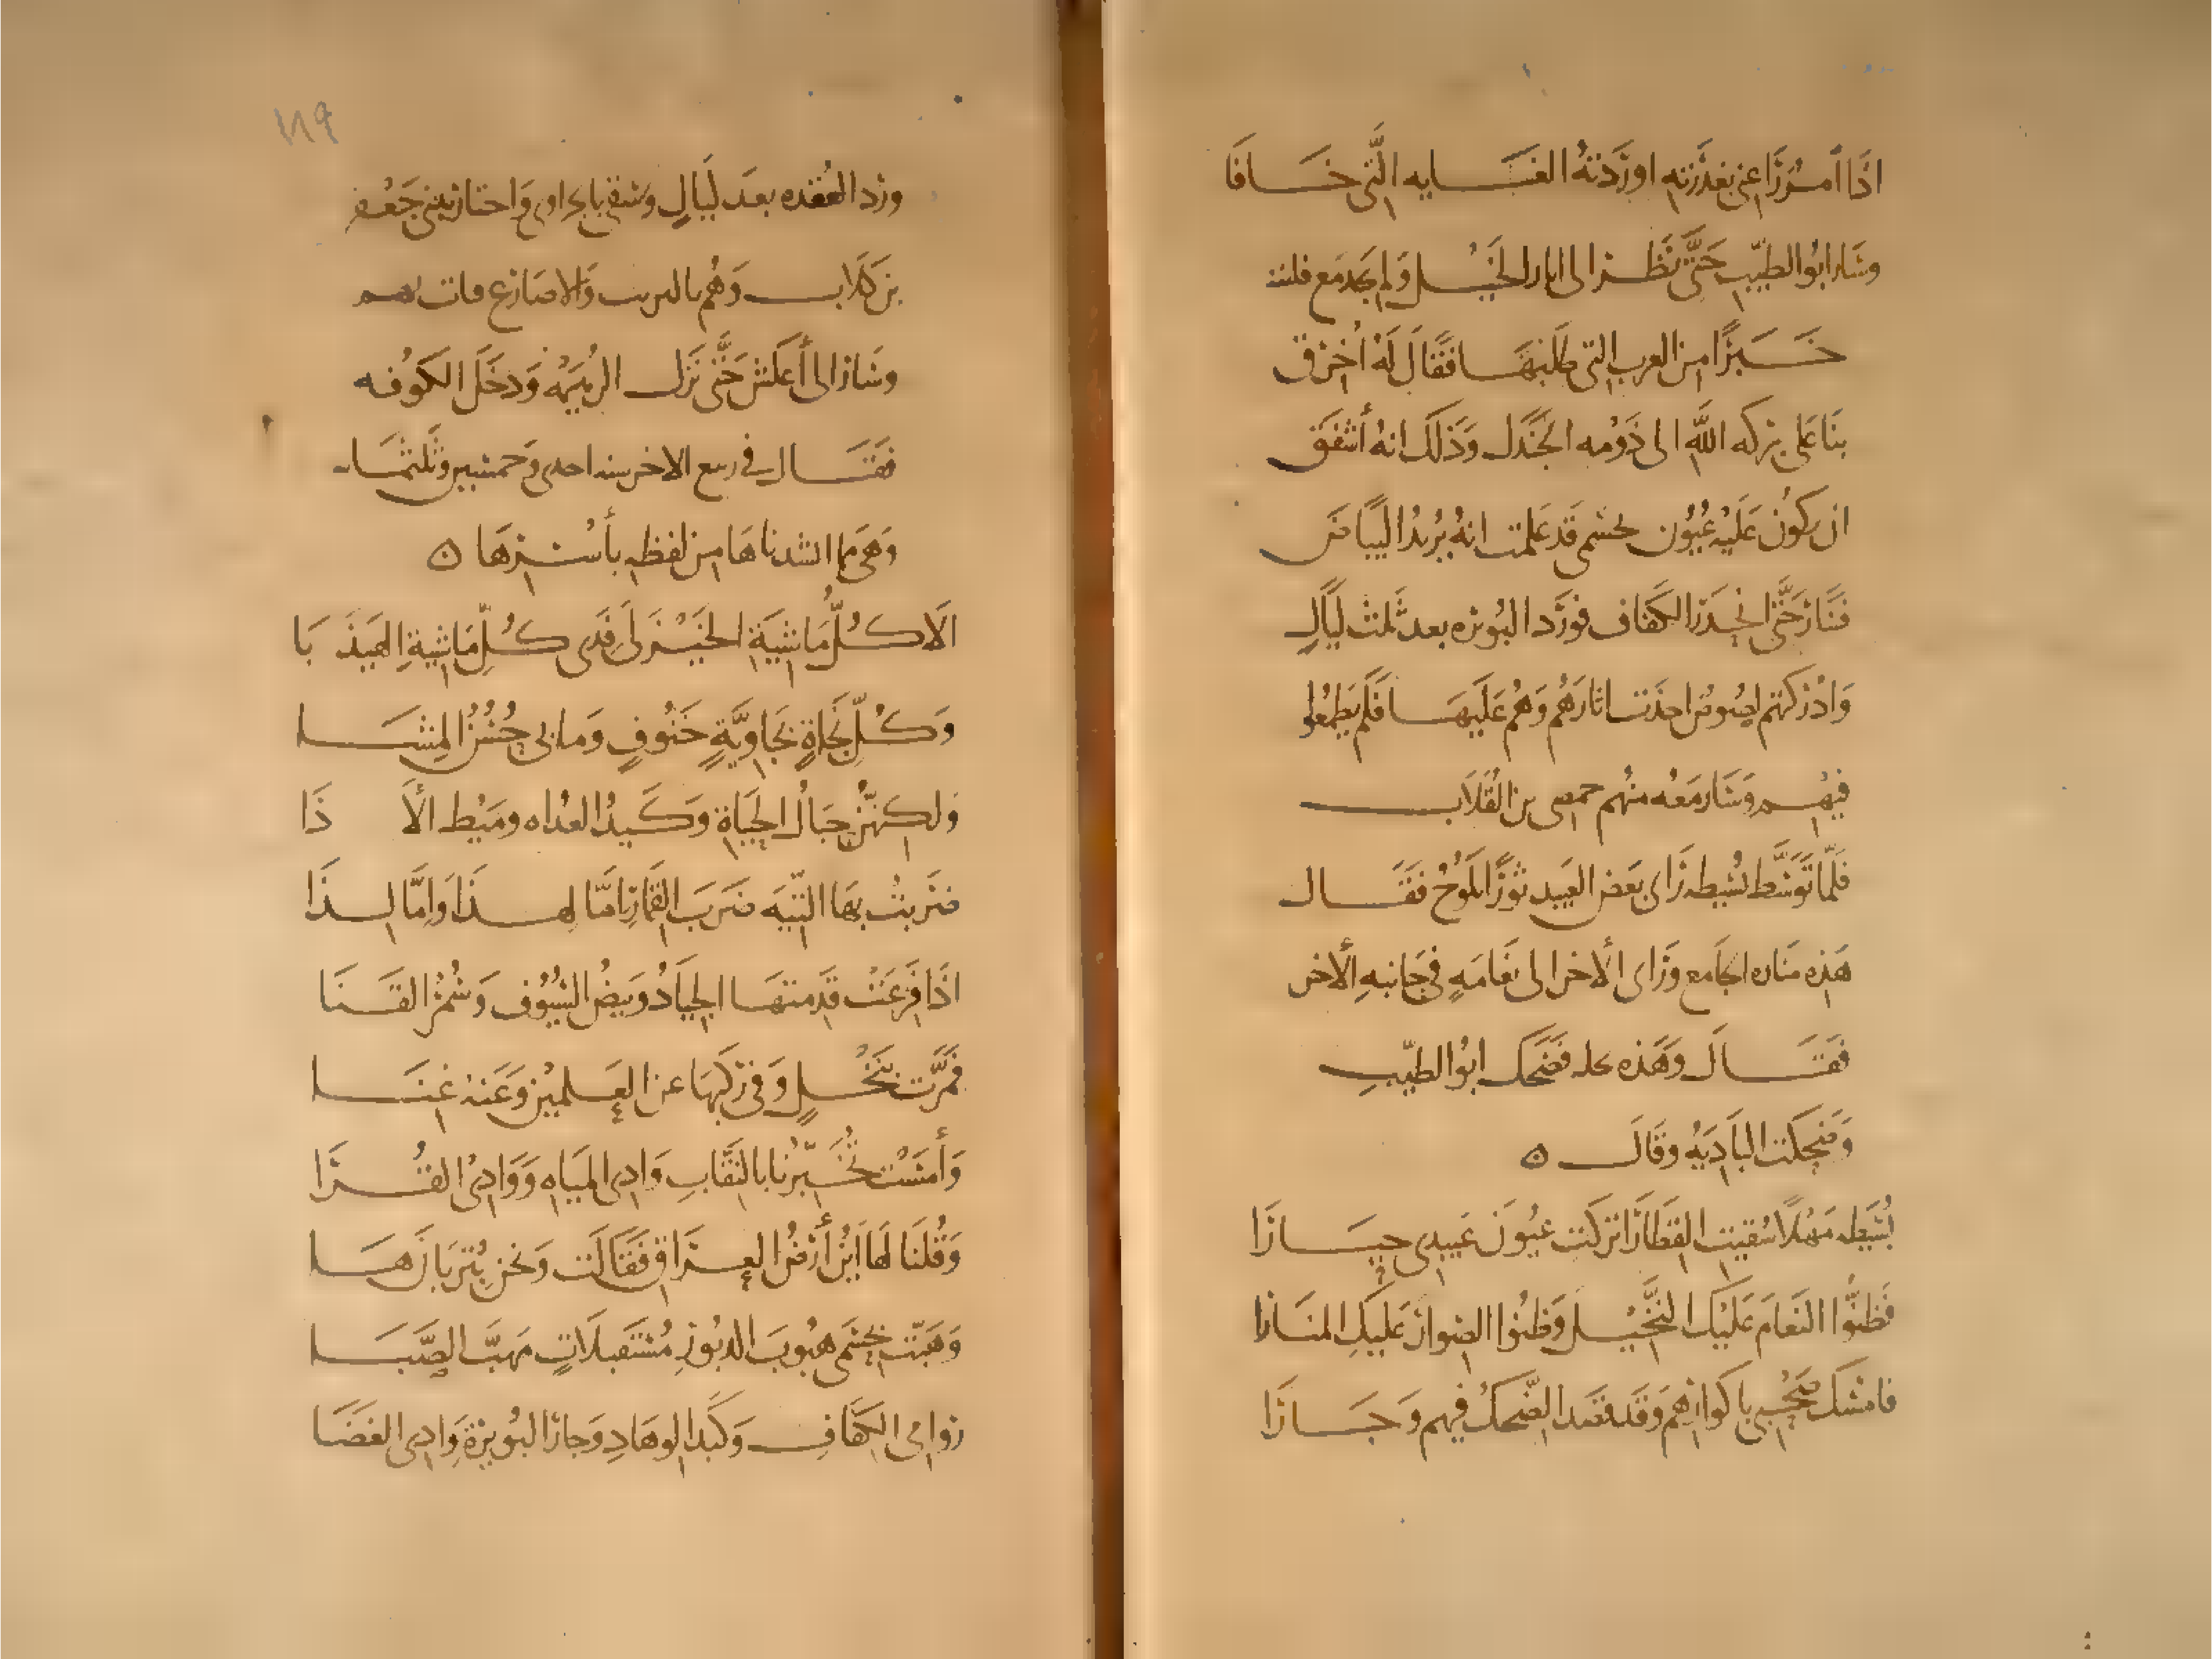 اذَا امْرُؤٌ رَاعَنِي بغَدْرَتِهِ اورَدْتُهُ الغَايه الَّتِي خَافَا
وسَارَ ابُو الطيّب حَتَّى نَظَر الى اثار الخَيْل وَلم يَجد مَع فليته
خَبَرًا من العرب التي طلبهَا فقَالَ لَهُ اُخرُق
بنَا عَلى بركه اللَّه الى دَوْمه الجَنْدَل وَذلكَ انهُ أشْفَقَ
ان يكون عَلَيْه عُيُون بحسْمى قَد عَلمت انهُ يُريدُ البيَاضَ
فسَارَ حَتَّى انحَدَرَ الكفاف فوَرَدَ البُوَيره بعد ثَلث ليَالٍ
وَادْركتهم لصُوصٌ اخذَت اثارَهُم وَهُم عَلَيهَا فلَم يَطمَعُوا
فيهِم وسَار مَعه منهُم حمصى بن القُلَاب
فَلمّا تَوَسَّط بُسَيطه رَاى بَعض العَبيد ثَوْرًا يَلُوحُ فقَال
هَذه مَناره الجَامع ورَاى الأخر الى نعَامَهٍ في جَانبهِ الأخر
فقَالَ وَهَذه نخله فضَحكَ ابُو الطيّبِ
وَضحِكت البَاديَهُ وقَالَ ۞
بُسَيطه مَهْلًا سُقيتِ القِطَارَا تركت عيُونَ عَبيدِي حيَارَا
فظنُّوا النَعَامَ عَليْك النَّخيْل وَظنُوا الصوارَ عَليكِ المنَارَا
فامسَكَ صَحْبي باكوَارهم وَقد قصَد الضّحكُ فيهم وَجَارَا
١١٩
ورَد العُقده بعدَ لَيَالٍ وسُقي بالجراوي وَاجتاز ببني جَعْفر
بن كلَاب وَهُم بالبريت وَالاضَارع فبات بهم
وسَارَ الى أعكش حَتَّى نَزل الرُهَيمَه وَدخَلَ الكوُفه
فقَال في ربيع الاخر سنه احدى وَخمسين وثَلثمَائه
وَهي مما انشدناهَا من لفظه بأسْرهَا ۞
الَا كُلُّ مَاشيَةِ الخَيْزَلَى فِدَى كُلِّ مَاشِيةِ الهَيذَبَا
وَكُلِّ نَجَاةٍ بجَاويَّةٍ خَنُوفٍ وَما بي حُسْنُ المِشَا
وَلكنهُنَّ حِبَالُ الحَيَاةِ وَكَيدُ العُداه ومَيْط الأذَا
ضَربتُ بهَا التّيهَ ضَرَبَ القمَارِ امَّا لهذَا وَامَّا لذَا
اذَا فَزِعَتْ قَدمتهَا الجيَادُ وَبيضُ السُيُوف وَسُمْرُ القَنَا
فمَرَّت بنَخْلٍ وَفي رَكبهَا عن العَلميْن وَعَنهُ غِنَا
وَأمسَتْ تُخَبّرُنا بالنقَابِ وَادِي الميَاهِ وَوَادِيْ القُرَا
وَقُلنَا لهَا ايْن أرْضُ العرَاق فَقَالَت وَنحن بتُربَانَ هَا
وَهَبّت بحِسْمَى هبُوبَ الدبُورِ مُسْتَقبلَاتٍ مَهَبَّ الصَّبَا
رَوامِي الكِفَافِ وَكَبدِ الوهَادِ وَجارَ البُوَيرَةِ وَادِي الغَضَا